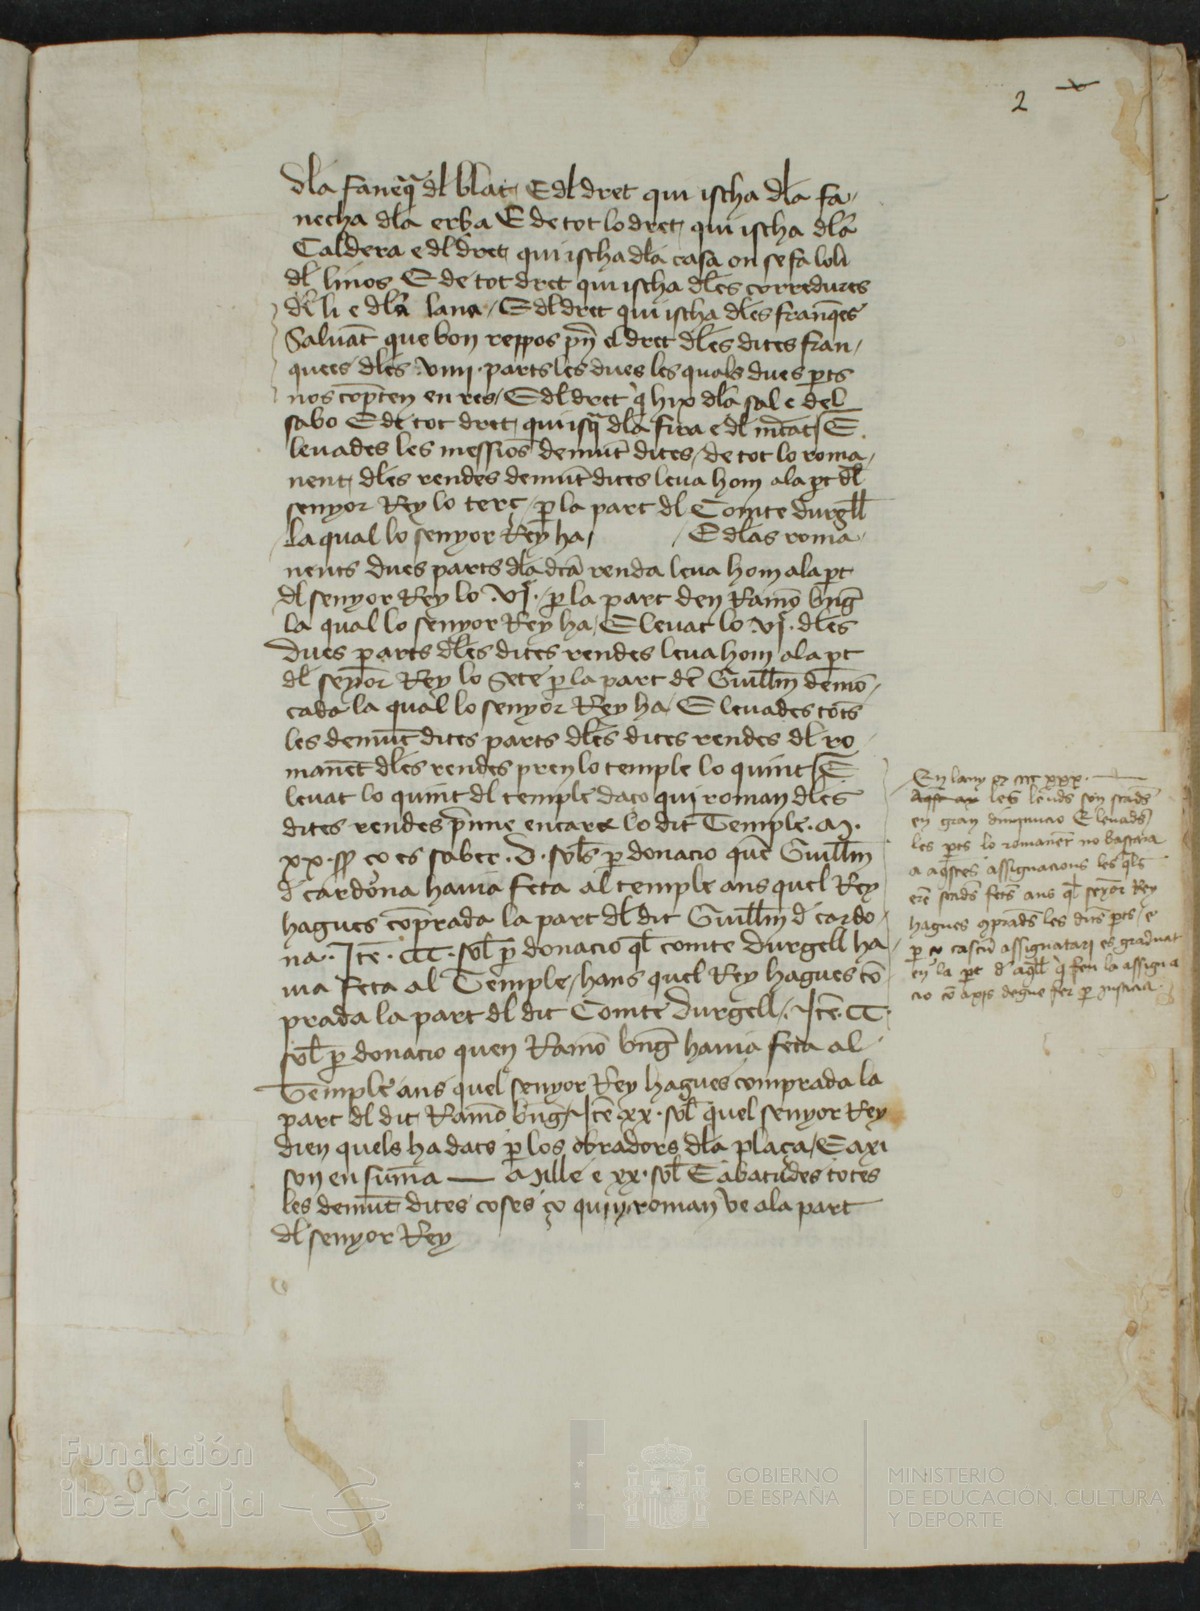 2
dla faneq̃ dl blat, E dl dret qui ischa dla fa,
necha dla erba E de tot lo dret, qui ischa dla
Caldera e dl dret, qui ischa dla casa on se fa loli
dl linos E de tot dret qui ischa dles corredures
dl li e dla lana, E dl dret qui ischa dles franq̃es
Saluãt que bon reppos pr̃n el dret dles dites fran,
quees dles viiii parts les dues les quals dues pts
nos cõpten en res, E dl dret q̃ hix dla sal e del
sabo E de tot dret, qui isq̃ dla fira e dl mercat, E
leuades les messions demũt dites, de tot lo roma,
nent, dles rendes demũt dites leua hom ala pt dl
senyor Rey lo terç, p la part dl Comte durgll
la qual lo senyor Rey ha, E dlas roma,
nents dues parts dla dcã renda leua hom ala pt
dl senyor Rey lo .vj. p la part den Ramõ bñg̃
la qual lo senyor Rey ha, E leuat lo .vj. dles
dues parts dles dites rendes leua hom ala pt
dl senyor Rey lo Sete p la part dẽ Guillm demõ,
cada la qual lo senyor Rey ha, E leuades totes
les demũt dites parts dles dites rendes dl ro
manẽt dles rendes pren lo temple lo quint, E
leuat lo quint dl temple daço qui roman dles
dites rendes pr̃nne encara lo dit Temple. M.
xx. ss ço es saber .D. sols p donacio quẽ Guillm
d cardona hauia feta al temple ans quel Rey
hagues cõprada la part dl dit Guillm d cardo
na. Itẽ. CC. sol p donacio ql comte durgell ha,
uia feta al Temple, hans quel Rey hagues cõ
prada la part dl dit Comte durgell, Itẽ. CC.
sol p donacio quen Ramõ bñg̃ hauia feta al
Temple ans quel senyor Rey hagues comprada la
part dl dit Ramõ bñg̃, Itẽ xx. sol quel senyor Rey
dien quels ha dats p los obradors dla plaça, E axi
son en suma — a Mille e xx. sol E abatudes totes
les demũt dites coses ço quiy roman ve ala part
dl senyor Rey
En lany m ccc xxx.
les lends son stads
en gran diminucio E leuads
les pts lo romanẽt no bastaria
a aq̃stes assignacions les q̃ls
erẽ stads fets ans ql senyor Rey
hagues cõprads les dits pts, e
p ço cascũ assignatari es graduat
en la pt d aq̃ll q̃ feu la assigna
cio cõ axis degue fer p justicia.
Fundación
iberCaja
GOBIERNO
DE ESPAÑA
MINISTERIO
DE EDUCACIÓN, CULTURA
Y DEPORTE